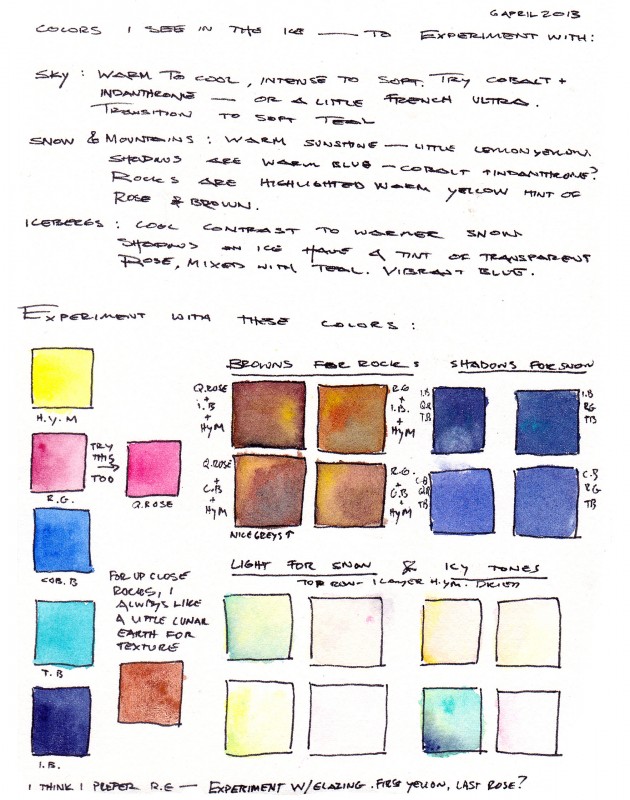 6 APRIL 2013
COLORS I SEE IN THE ICE — TO EXPERIMENT WITH:
SKY: WARM TO COOL, INTENSE TO SOFT. TRY COBALT +
INDANTHRONE — OR A LITTLE FRENCH ULTRA.
TRANSITION TO SOFT TEAL
SNOW & MOUNTAINS: WARM SUNSHINE — LITTLE LEMON YELLOW.
SHADOWS ARE WARM BLUE — COBALT + INDANTHRONE?
ROCKS ARE HIGHLIGHTED WARM YELLOW HINT OF
ROSE & BROWN.
ICEBERGS: COOL CONTRAST TO WARMER SNOW
SHADOWS ON ICE HAVE A TINT OF TRANSPARENT
ROSE, MIXED WITH TEAL. VIBRANT BLUE.
EXPERIMENT WITH THESE COLORS:
H.Y.M
R.G.
TRY
THIS
TOO
Q.ROSE
COB. B
T.B
I.B.
FOR UP CLOSE
ROCKS, I
ALWAYS LIKE
A LITTLE LUNAR
EARTH FOR
TEXTURE
BROWNS FOR ROCKS
Q.ROSE
+
I.B
+
HYM
R.G
+
I.B.
+
HYM
Q.ROSE
+
C.B
+
HYM
R.G.
+
C.B
+
HYM
NICE GREYS↑
SHADOWS FOR SNOW
I.B
QR
TB
I.B
RG
TB
C.B
QR
TB
C.B
RG
TB
LIGHT FOR SNOW & ICY TONES
TOP ROW - 1 LAYER H.Y.M. DRIED
I THINK I PREFER R.G — EXPERIMENT W/GLAZING. FIRST YELLOW, LAST ROSE?